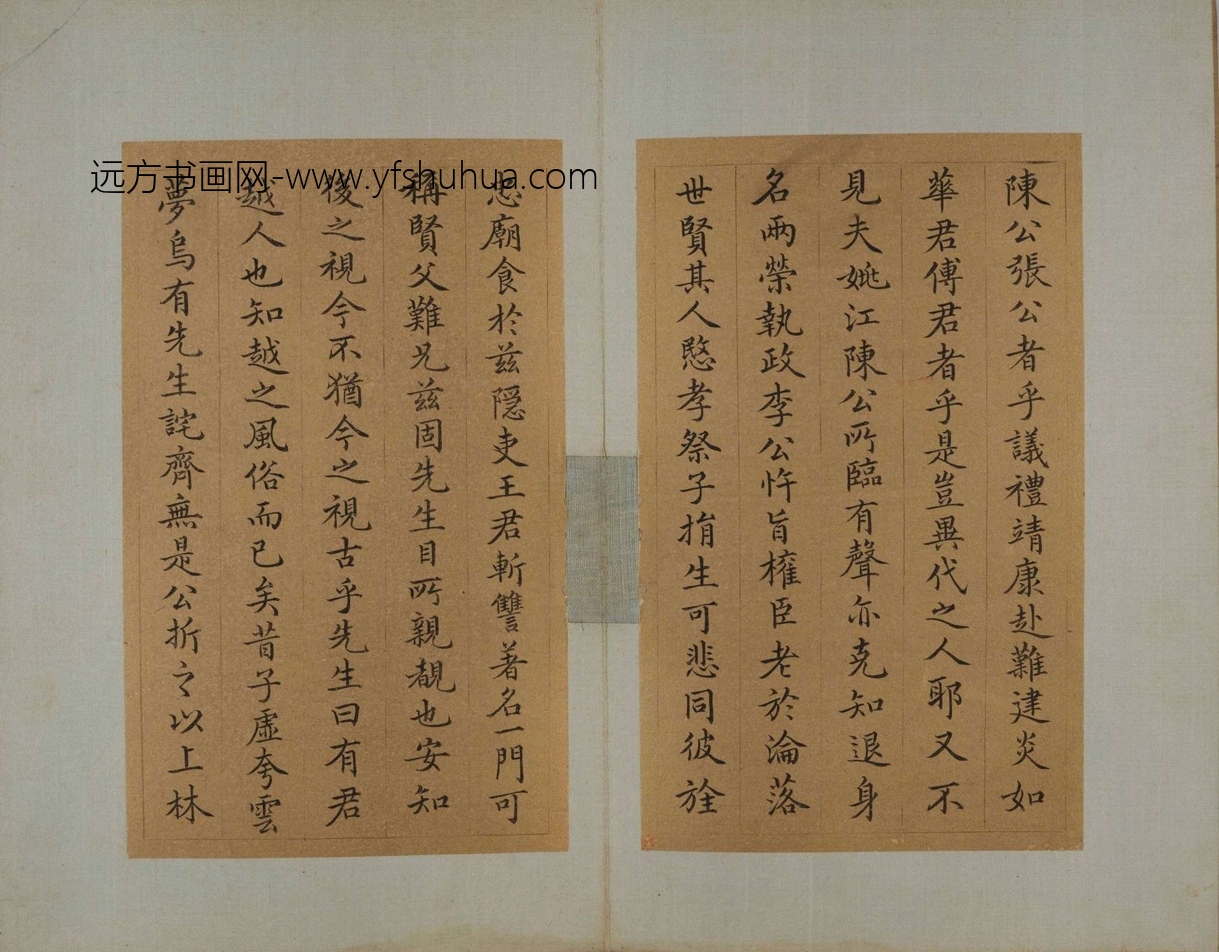 陳公張公者乎議禮靖康赴難建炎如
華君傅君者乎是豈異代之人耶又不
見夫姚江陳公所臨有聲亦克知退身
名兩榮執政李公忤旨權臣老於淪落
世賢其人愍孝祭子捐生可悲同彼旌
忠廟食於茲隱吏王君斬讐著名一門可
稱賢父難兄茲固先生目所親覩也安知
後之視今不猶今之視古乎先生曰有君
越人也知越之風俗而已矣昔子虛夸雲
夢烏有先生詫齊無是公折之以上林
远方书画网-www.yfshuhua.com